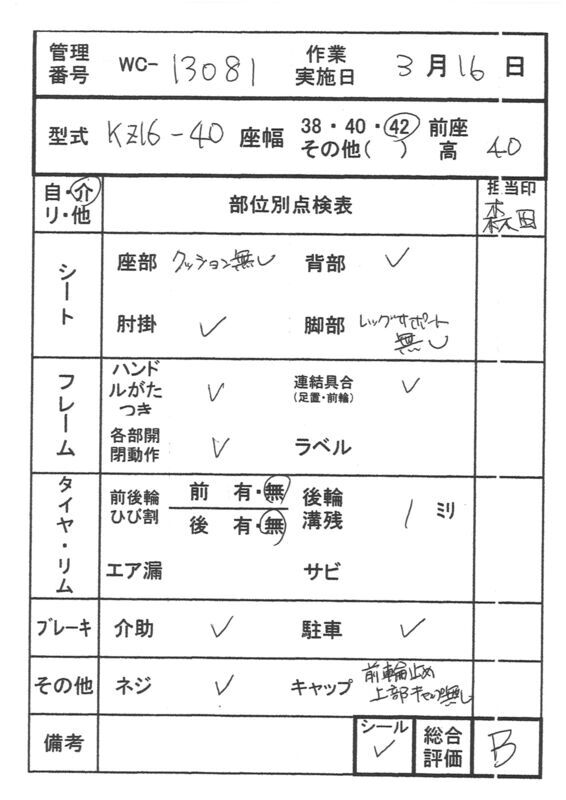 管理番号 WC-13081 作業実施日 3月16日
型式 KZ16-40 座幅 38・40・42 その他( ) 前座高 40
自・介リ・他 部位別点検表 担当印
森田
シート 座部 クッション無し 背部 ✓
肘掛 ✓ 脚部 レッグサポート無し
フレーム ハンドルがたつき ✓ 連結具合(足置・前輪) ✓
各部開閉動作 ✓ ラベル
タイヤ・リム 前後輪ひび割 前 有・無 後輪溝残 1 ミリ
後 有・無
エア漏 サビ
ブレーキ 介助 ✓ 駐車 ✓
その他 ネジ ✓ キャップ 前輪止め上部キャップ無し
備考 シール ✓ 総合評価 B